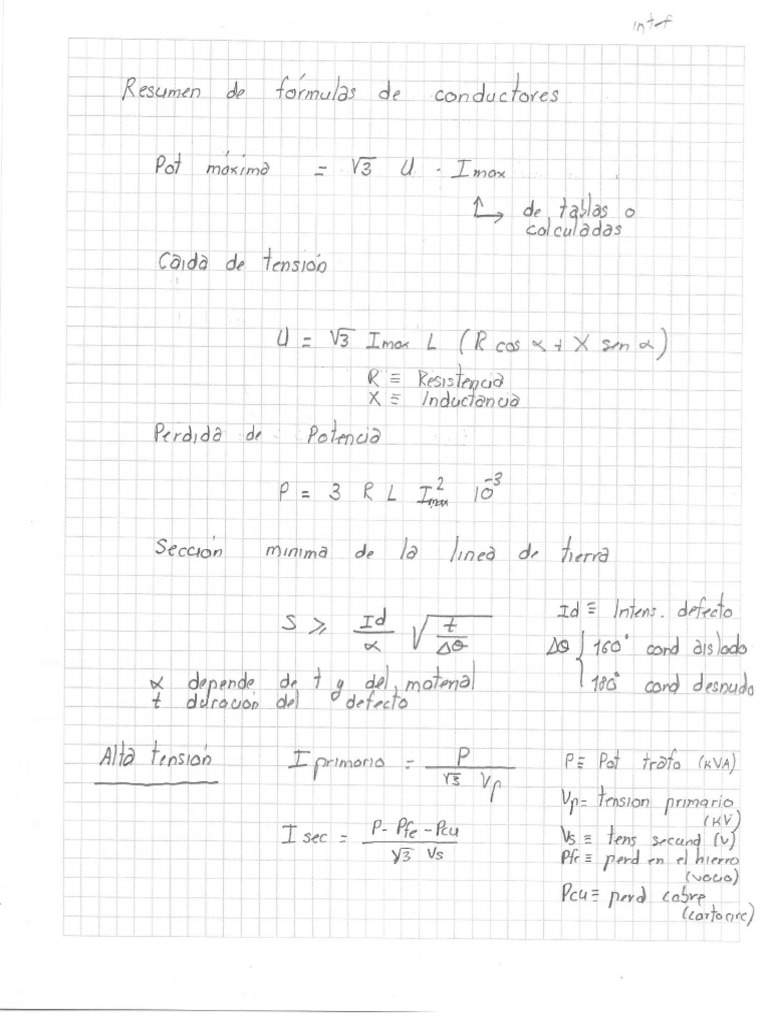 intef
Resumen de fórmulas de conductores
Pot máxima = √3 U · Imax
de tablas o
calculadas
Caida de tensión
U = √3 Imax L (R cos α + X sen α)
R ≡ Resistencia
X ≡ Inductancia
Perdida de Potencia
P = 3 R L I²max 10⁻³
Sección minima de la linea de tierra
S ≥ Id/α √(t/Δθ)
Id ≡ Intens. defecto
Δθ { 160° cond aislado
180° cond desnudo
α depende de t y del material
t duración del defecto
Alta tensión
I primario = P / (√3 Vp)
P ≡ Pot trafo (KVA)
Vp = tension primario
(KV)
I sec = (P - Pfe - Pcu) / (√3 Vs)
Vs ≡ tens secund (V)
Pfe ≡ perd en el hierro
(vacio)
Pcu ≡ perd cobre
(cortocirc)